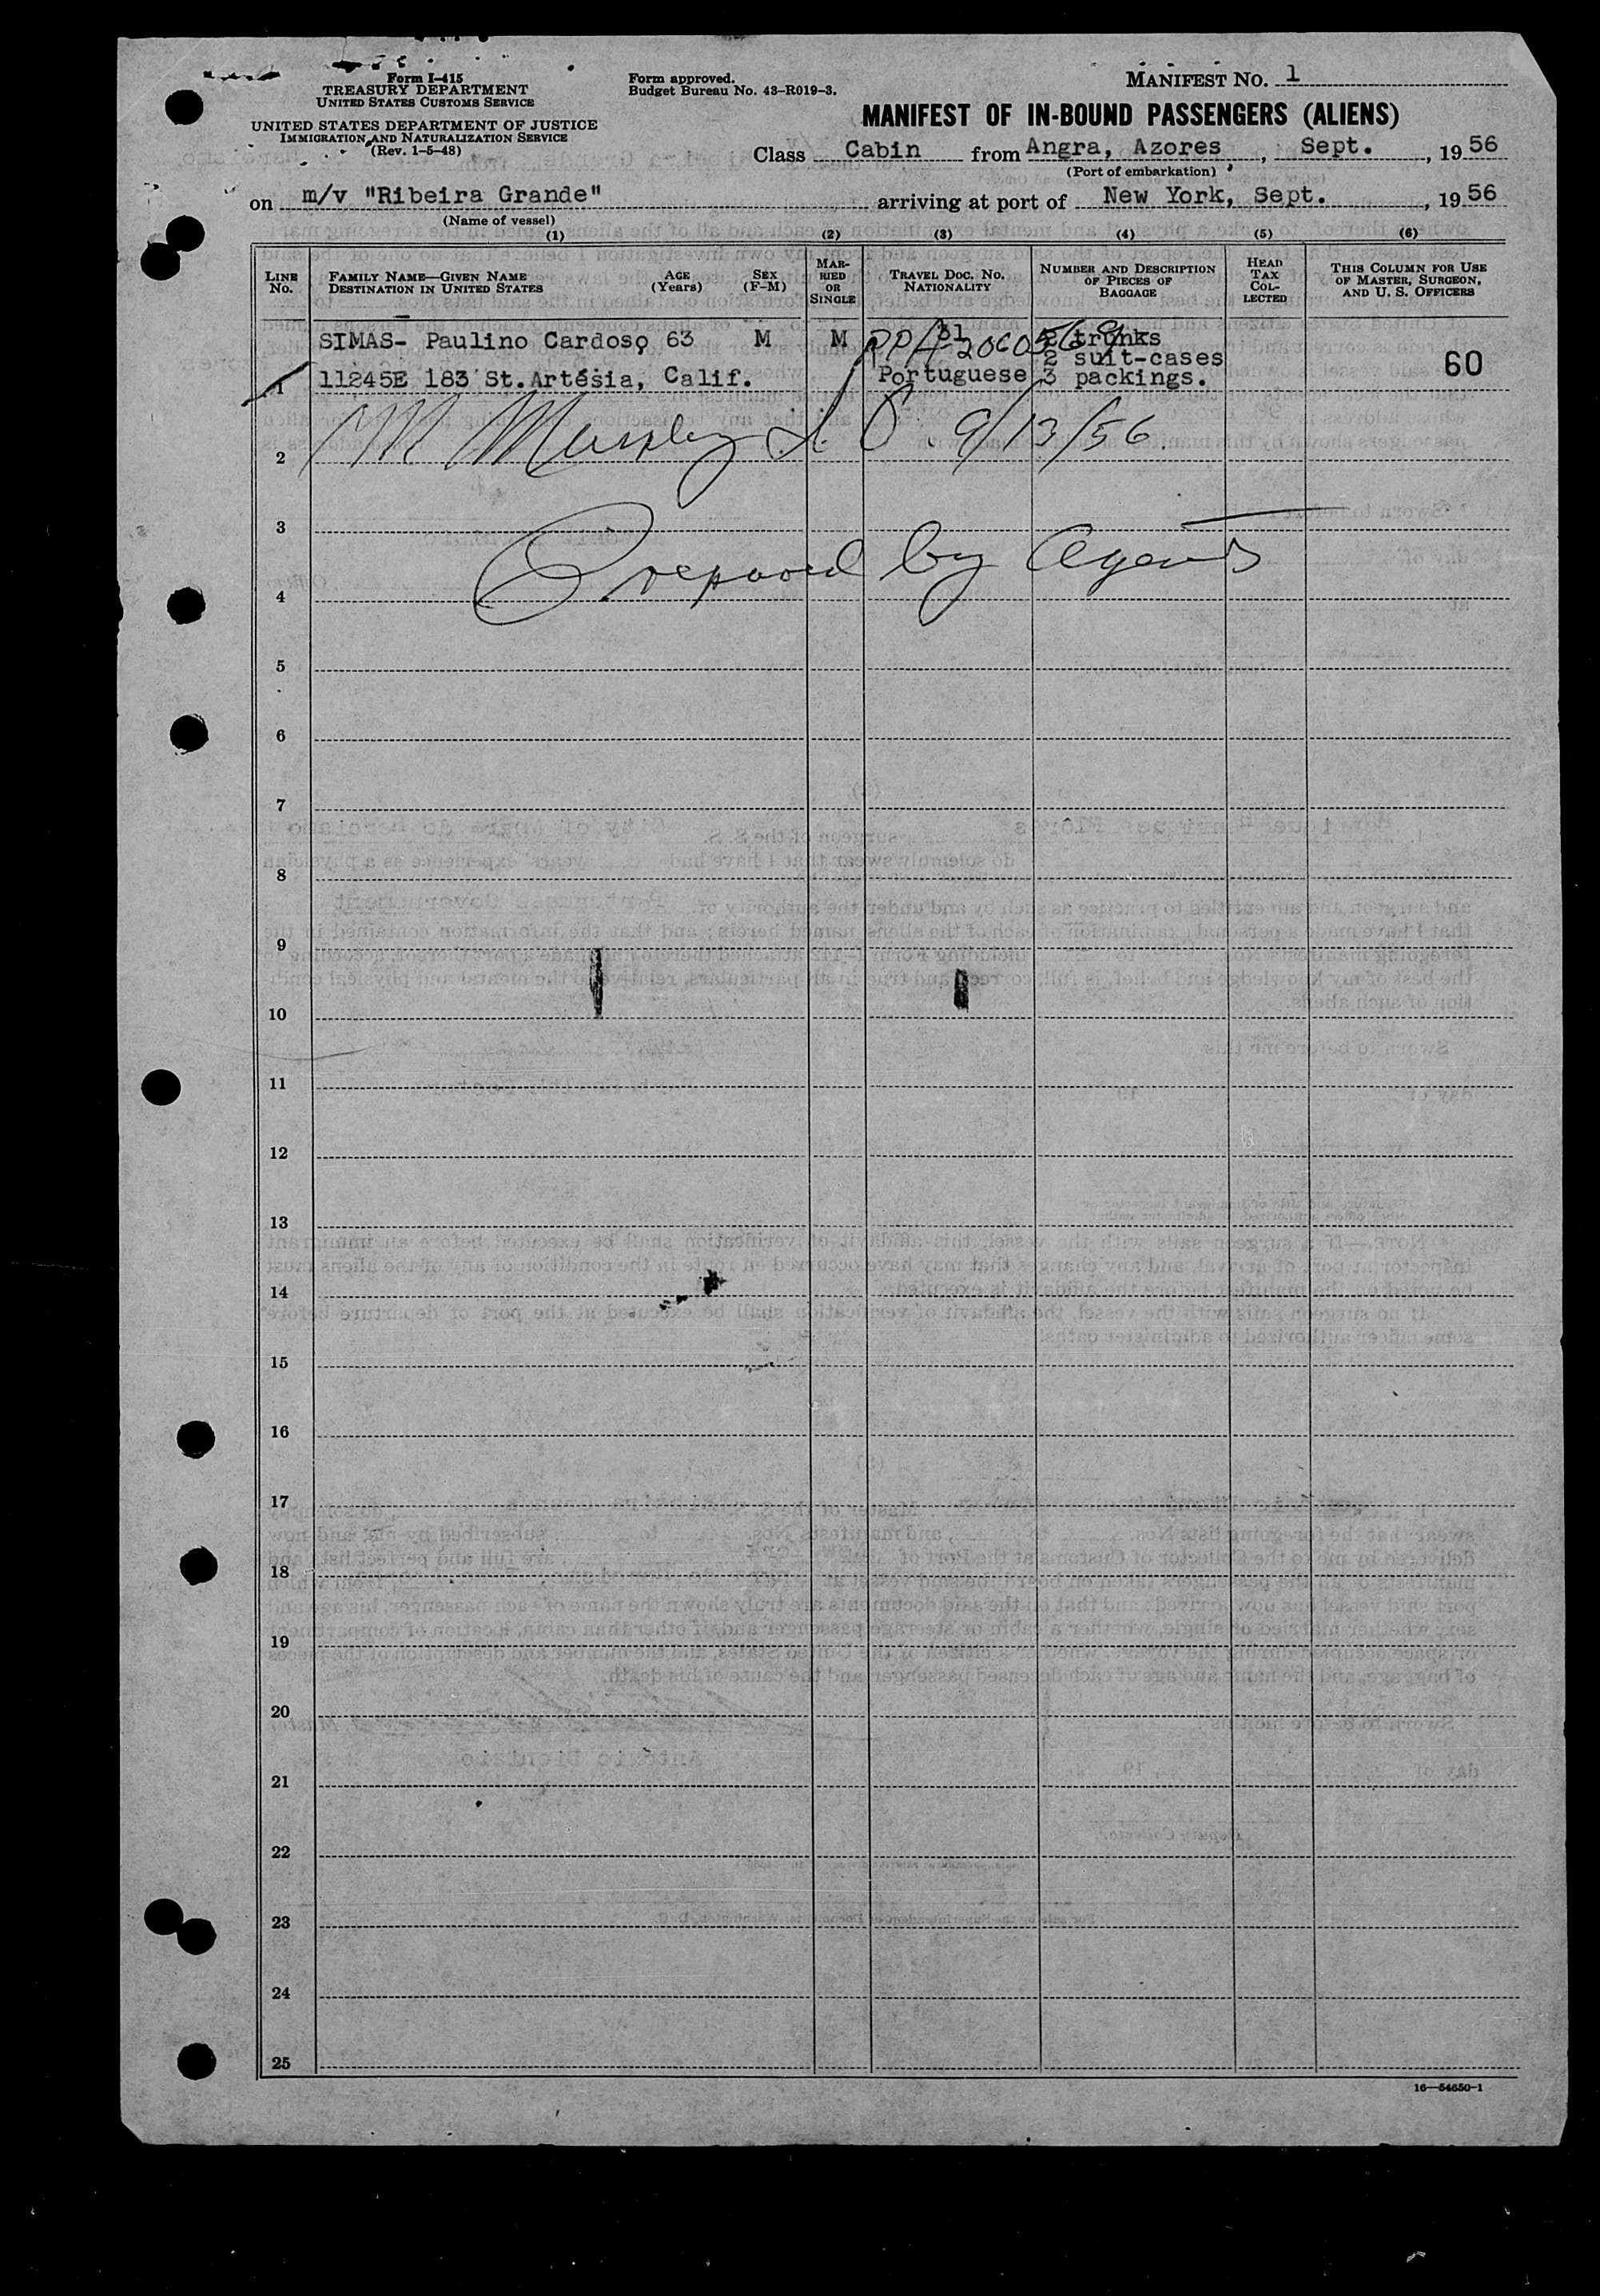 Form I-415
TREASURY DEPARTMENT
UNITED STATES CUSTOMS SERVICE
UNITED STATES DEPARTMENT OF JUSTICE
IMMIGRATION AND NATURALIZATION SERVICE
(Rev. 1-5-48)
Form approved.
Budget Bureau No. 43-R019-3.
MANIFEST NO. 1
MANIFEST OF IN-BOUND PASSENGERS (ALIENS)
Class Cabin from Angra, Azores, Sept., 1956
(Port of embarkation)
on m/v "Ribeira Grande" arriving at port of New York, Sept., 1956
(Name of vessel)
(1) (2) (3) (4) (5) (6)
LINE NO.
FAMILY NAME—GIVEN NAME
DESTINATION IN UNITED STATES
AGE (Years)
SEX (F-M)
MARRIED OR SINGLE
TRAVEL DOC. NO.
NATIONALITY
NUMBER AND DESCRIPTION OF PIECES OF BAGGAGE
HEAD TAX COLLECTED
THIS COLUMN FOR USE OF MASTER, SURGEON, AND U. S. OFFICERS
SIMAS- Paulino Cardoso 63 M M trunks
2 suit-cases
1 11245E 183 St.Artésia, Calif. Portuguese 3 packings. 60
2 Murphy 9/13/56
3
Prepared by Agents
4
5
6
7
8
9
10
11
12
13
14
15
16
17
18
19
20
21
22
23
24
25
16—54650-1